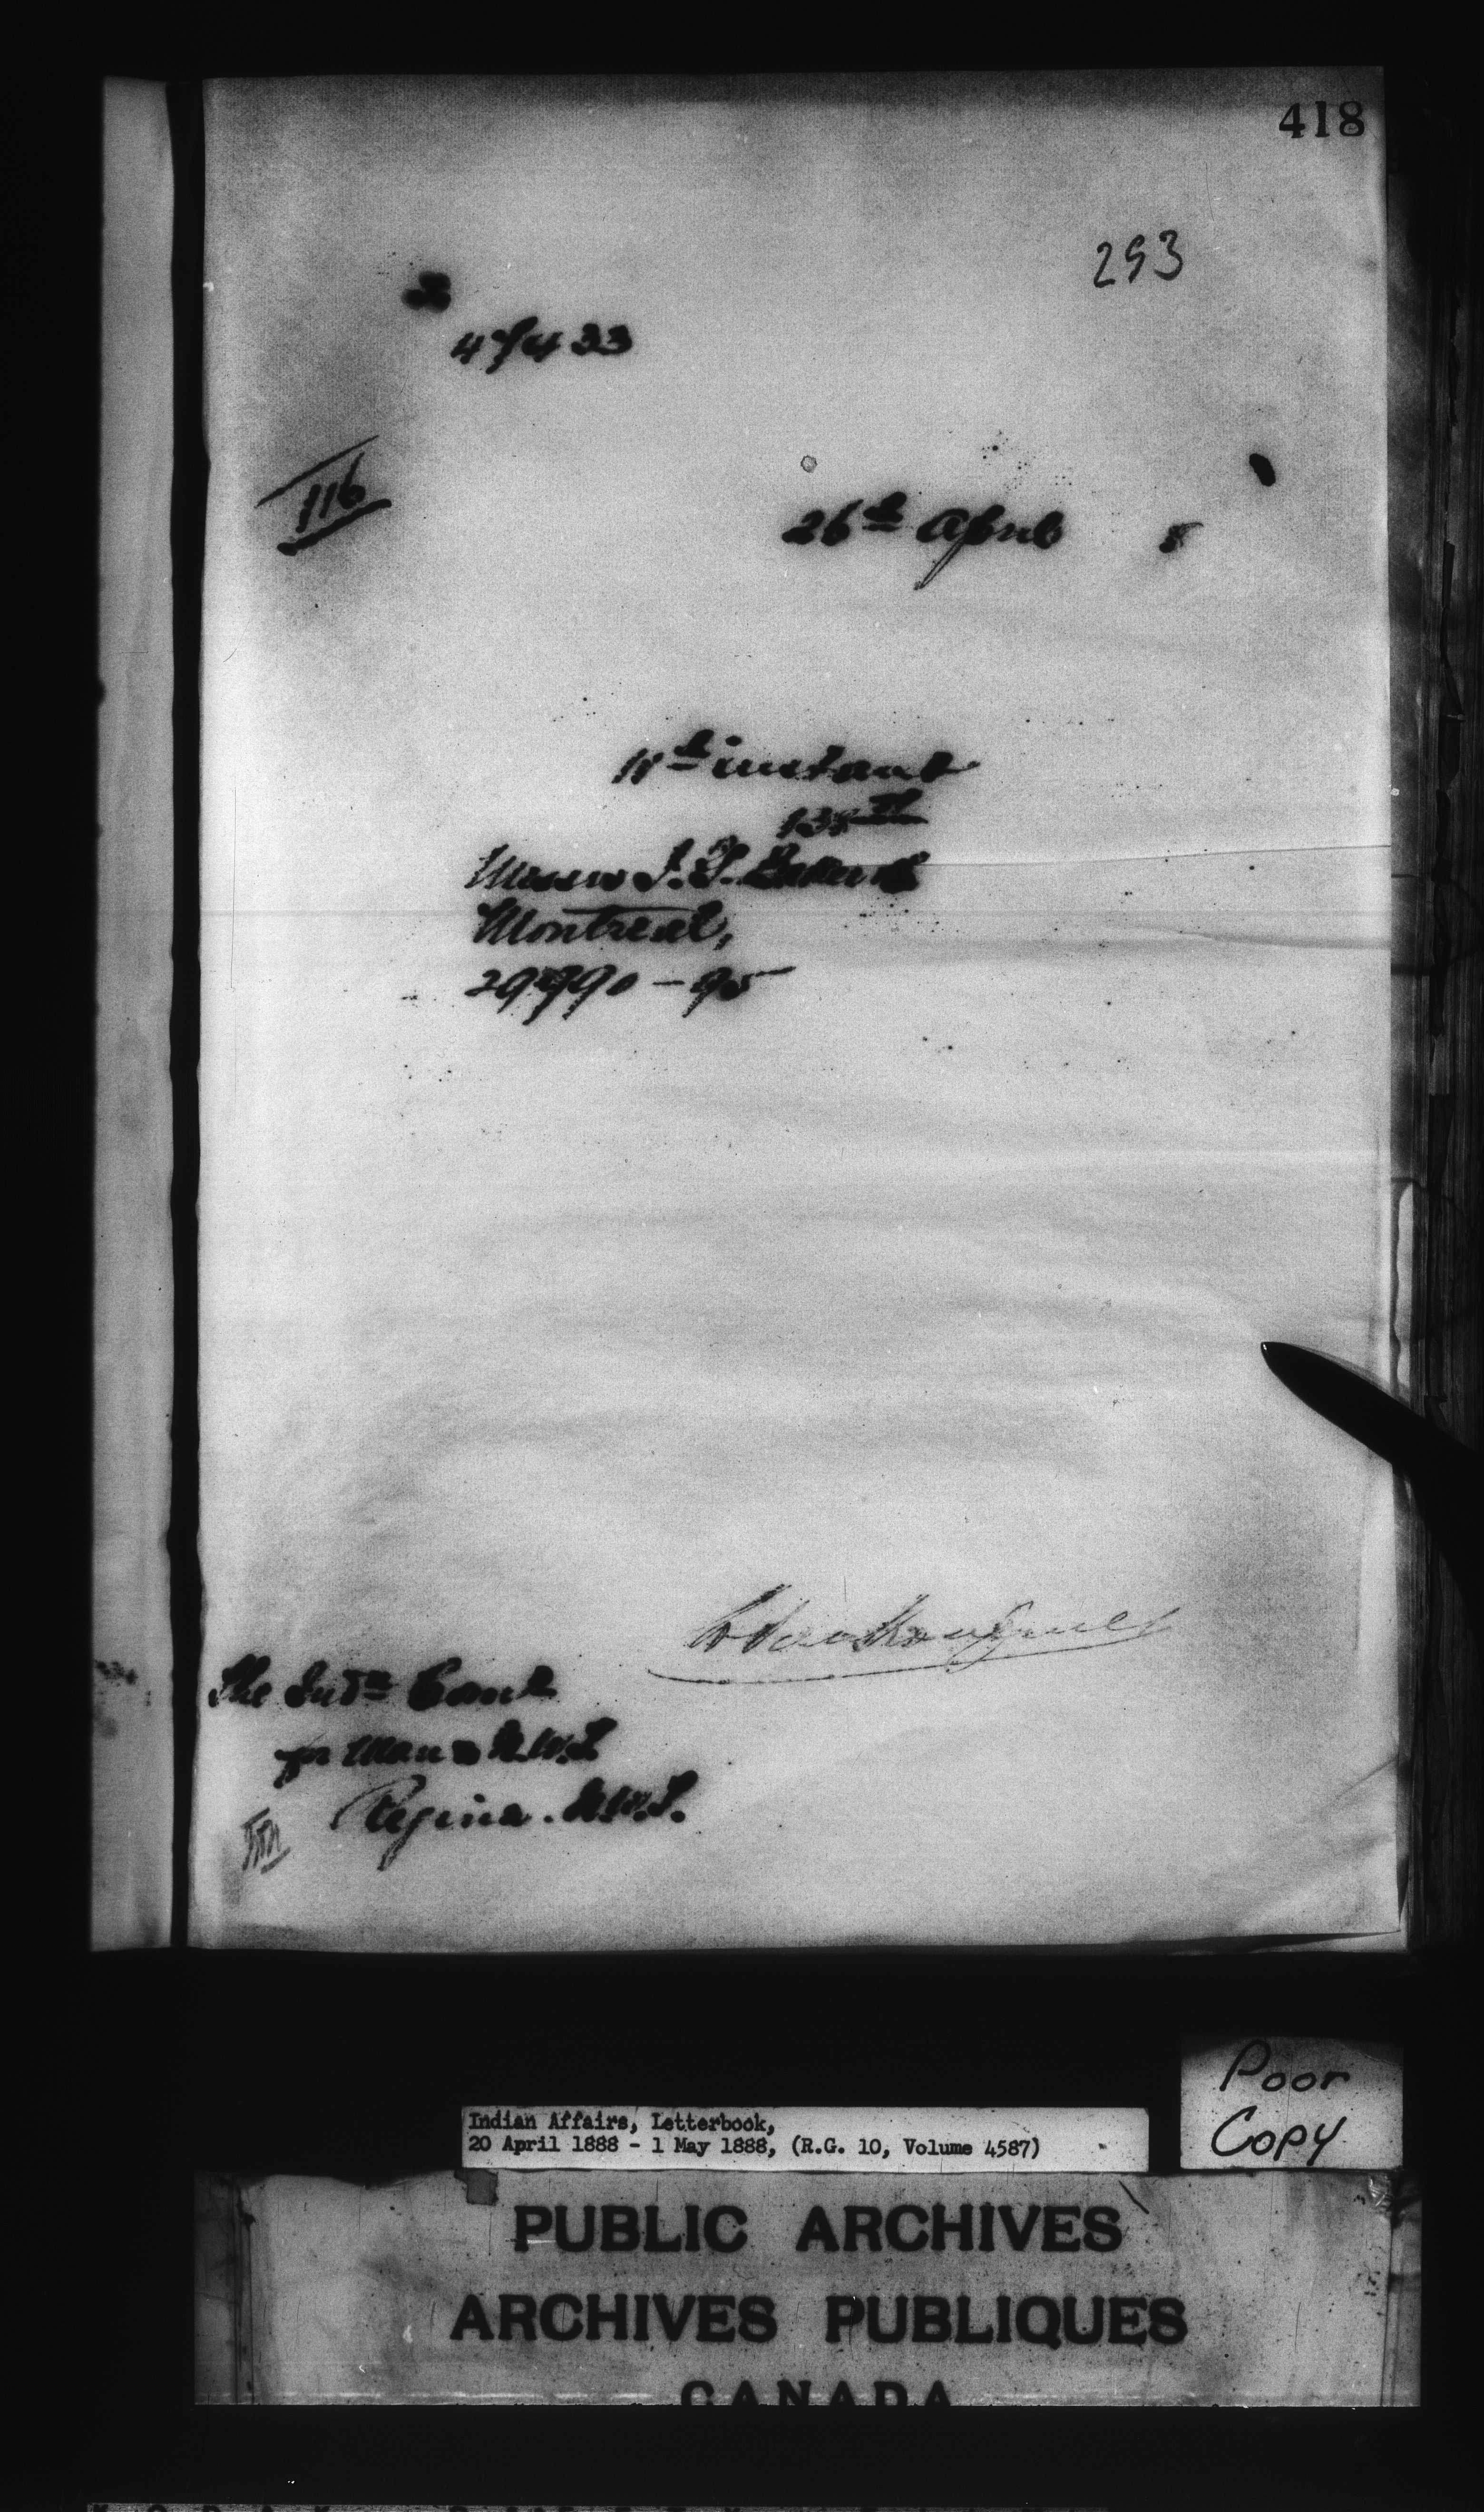 418
253
47433
116
26th April 8
11th instant
Messrs I. G. Baker &
Montreal,
29990 - 95
L Vankoughnet
The Indn Comr
for Man & N.W.T
Regina. N.W.T.
Poor
Copy
Indian Affairs, Letterbook,
20 April 1888 - 1 May 1888, (R.G. 10, Volume 4587)
PUBLIC ARCHIVES
ARCHIVES PUBLIQUES
CANADA